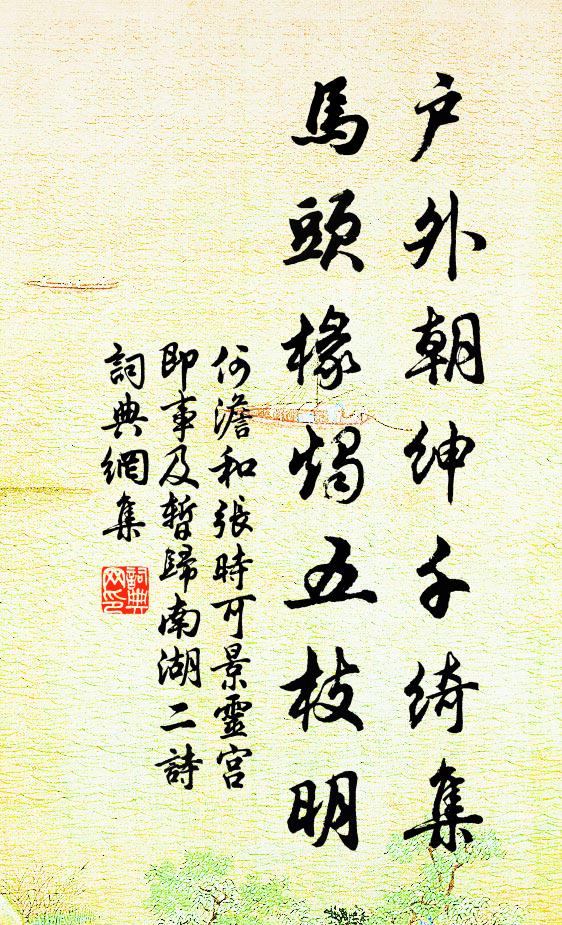 户外朝绅千绮集
馬頭椽燭五枝明
何澹和張時可景靈宫
即事及暫歸南湖二詩
詞典網集
詞典網印